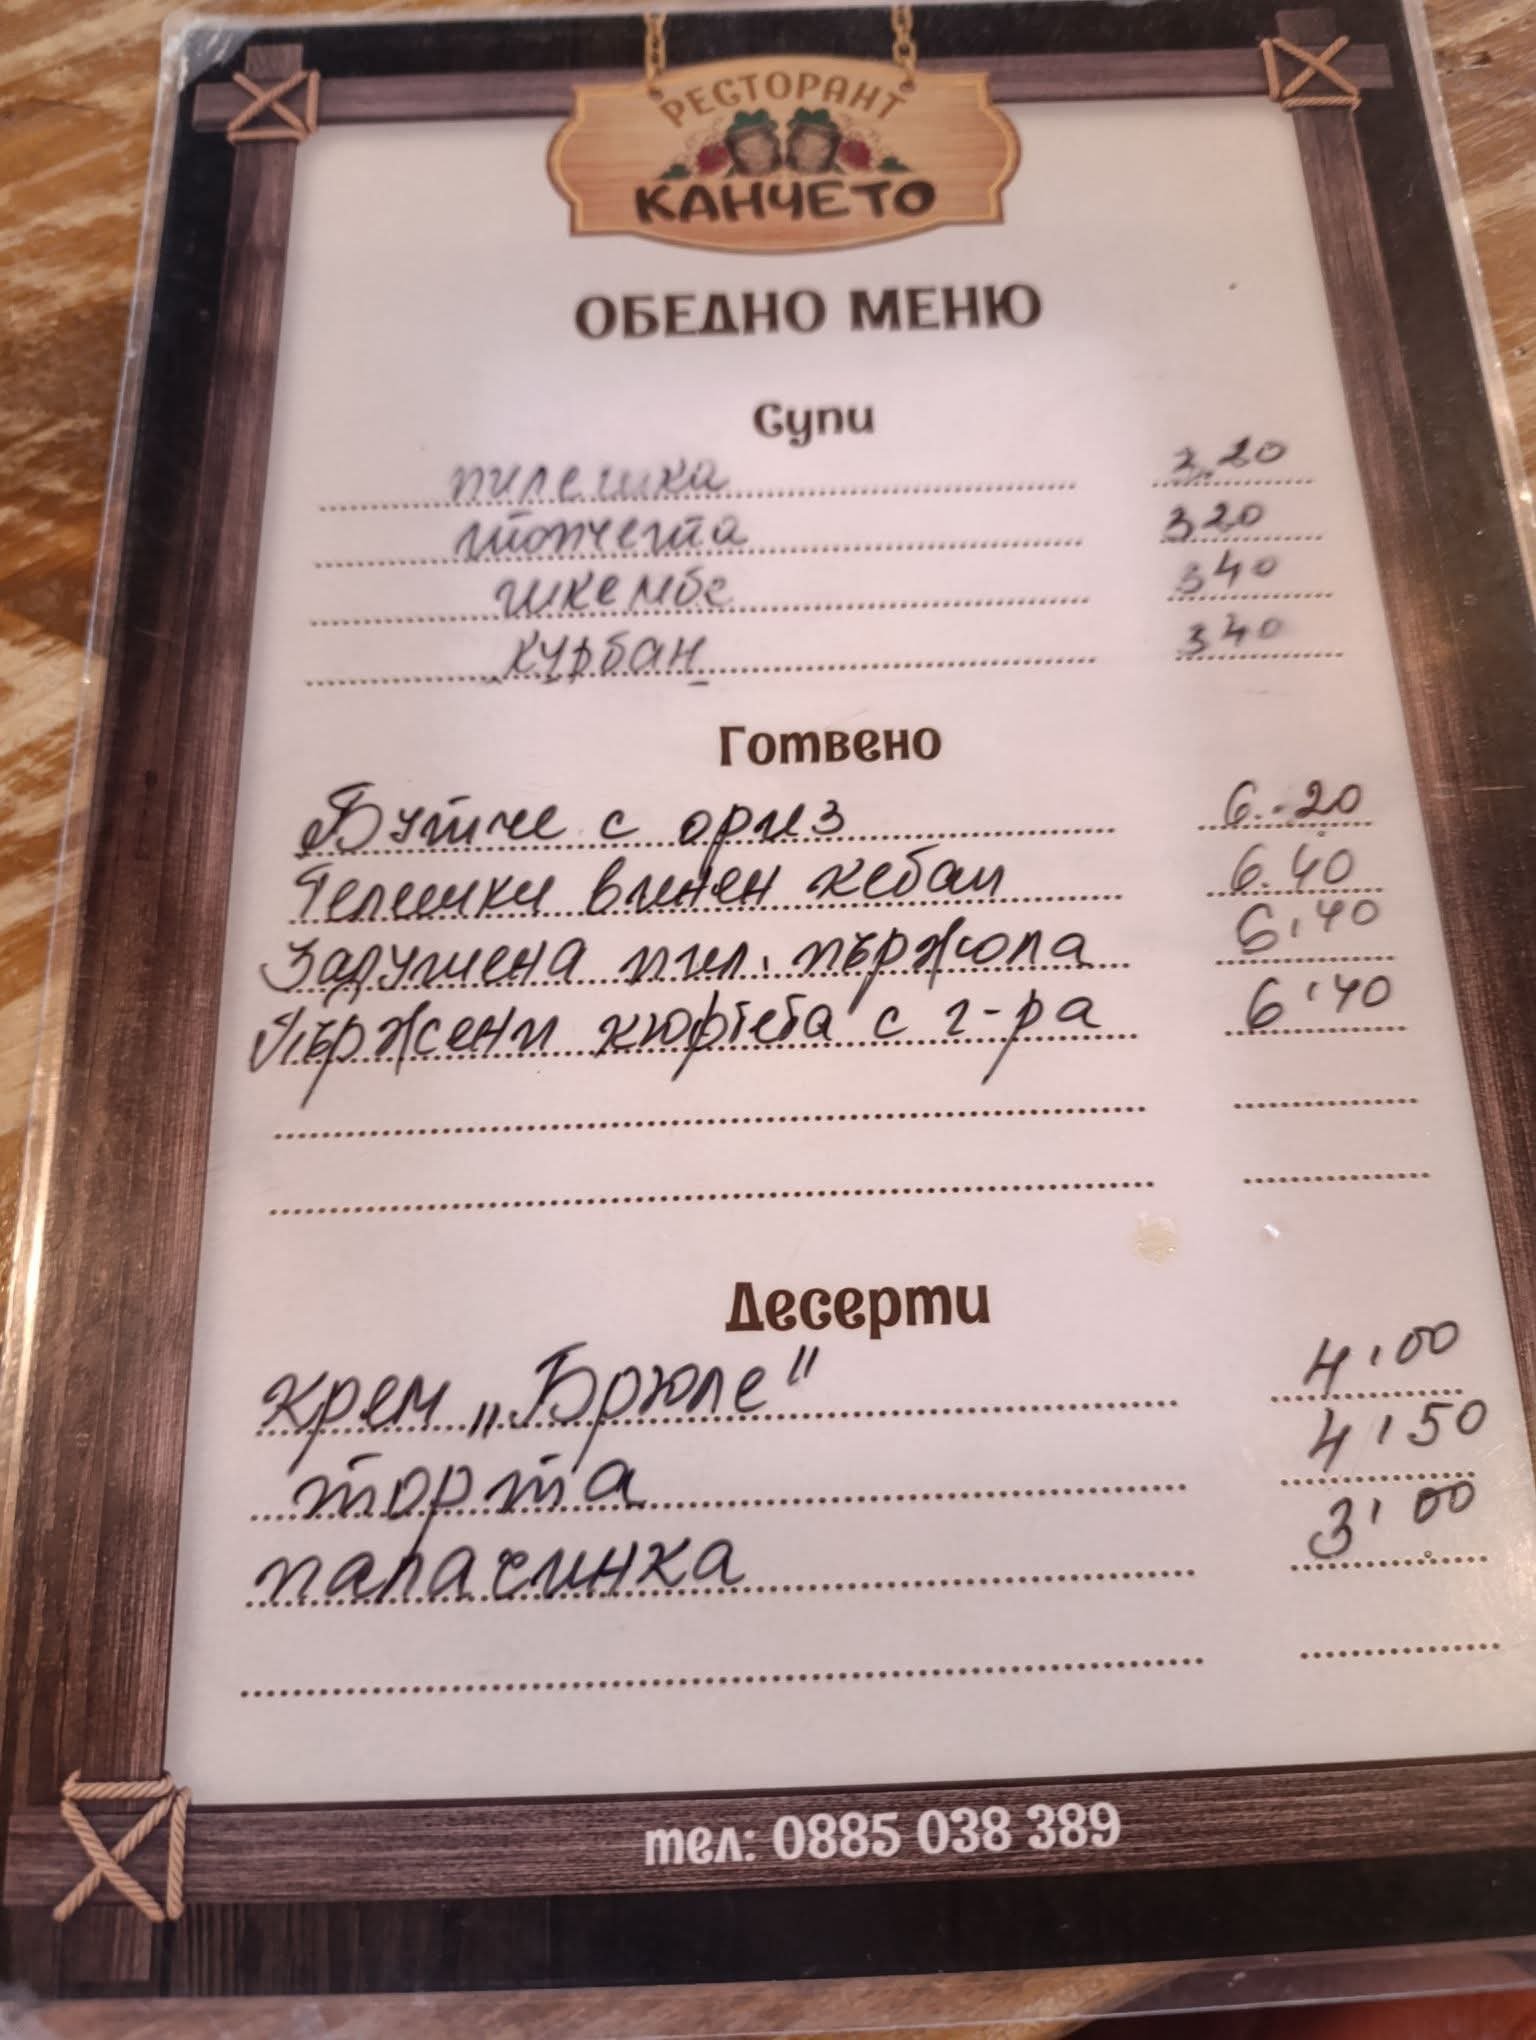 РЕСТОРАНТ
КАНЧЕТО
ОБЕДНО МЕНЮ
Супи
пилешка 3,20
топчета 3 20
шкембе 3 40
курбан 3 40
Готвено
Бутче с ориз 6.-20
Телешки винен кебап 6.40
Задушена пил. пържола 6,40
Пържени кюфтета с г-ра 6,40
Десерти
крем „Брюле" 4,00
торта 4,50
палачинка 3,00
тел: 0885 038 389